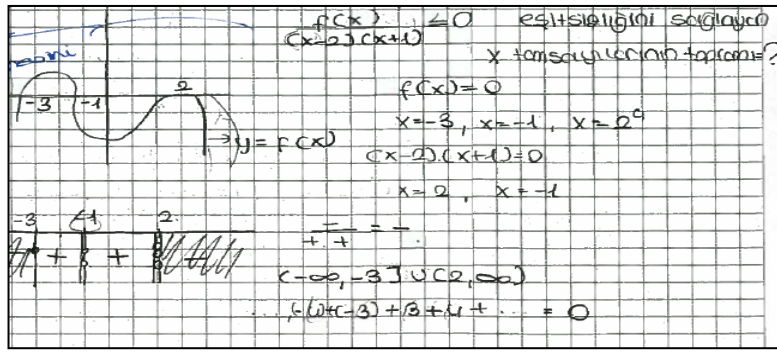 f(x) / (x-2)(x+1) ≤ 0 eşitsizliğini sağlayan
x tamsayılarının toplamı=?
-3 -1 2
y = f(x)
f(x) = 0
x=-3, x=-1, x=2
(x-2).(x+1)=0
x=2, x=-1
-3 -1 2
+ +
- / + . + = -
(-∞, -3] ∪ (2, ∞)
(-3) + 3 + 4 + ... = 0